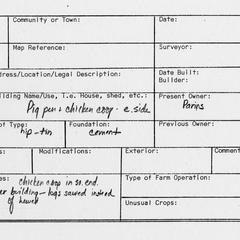 Community or Town: Date:
Map Reference: Surveyor:
dress/Location/Legal Description: Date Built:
Builder:
ilding Name/Use, I.e. House, shed, etc.: Present Owner:
Pig pen & chicken coop - e. side
of Type: Foundation: Previous Owner:
hip-tin cement
s: Modifications: Exterior: Comment
es: chicken coop in so. end. Type of Farm Operation:
er building - logs sawed instead
of hewed Unusual Crops: